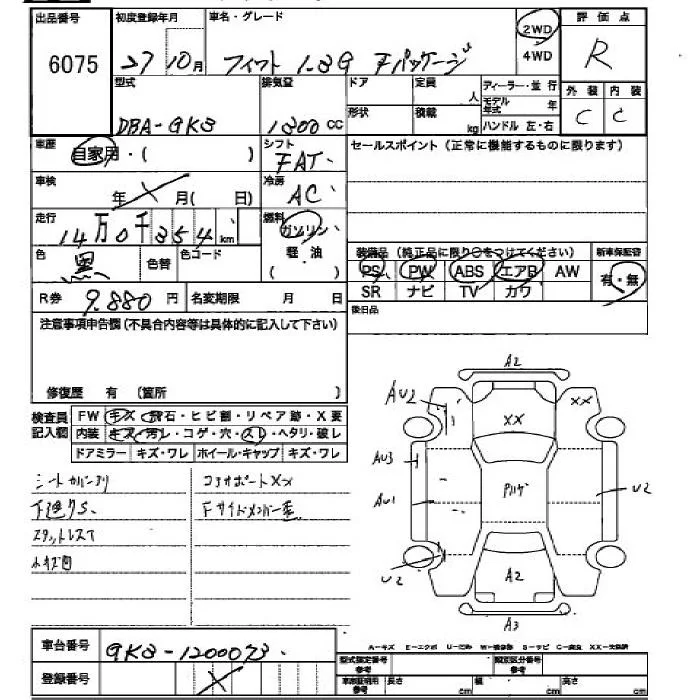 出品番号 6075
初度登録年月 27 10月
車名・グレード フィット 1.3G Fパッケージ
2WD
4WD
評価点 R
外装 C 内装 C
型式 DBA-GK3
排気量 1300 cc
ドア
形状
定員 人
積載 kg
ディーラー・並行
モデル年式 年
ハンドル 左・右
車歴 自家用・( )
シフト FAT
セールスポイント (正常に機能するものに限ります)
車検 年 月( 日)
冷房 AC
走行 14万0千354km
燃料 ガソリン
軽・油
( )
色 黒 色替 色コード
装備品 (純正品に限り○をつけてください)
新車保証書
PS PW ABS エアB AW
SR ナビ TV カワ
有・無
R券 9.880 円 名変期限 月 日
後日品
注意事項申告欄(不具合内容等は具体的に記入して下さい)
修復歴 有 (箇所 )
検査員記入欄
FW キズ・飛石・ヒビ割・リペア跡・X要
内装 キズ・汚レ・コゲ・穴・スレ・ヘタリ・破レ
ドアミラー キズ・ワレ ホイール・キャップ キズ・ワレ
シートカバー付
コアサポートXX
下廻りS.
スタットレスT
小キズ凹
A2
AU2
XX
XX
AU3
AU1
U2
U2
A2
A3
A-キズ E-エクボ U-凹み W-補修跡 S-サビ C-腐食 XX-交換済
車台番号 GK3-1200073
登録番号
型式指定番号 参考
類別区分番号 参考
車庫証明用 参考 長さ cm 幅 cm 高さ cm